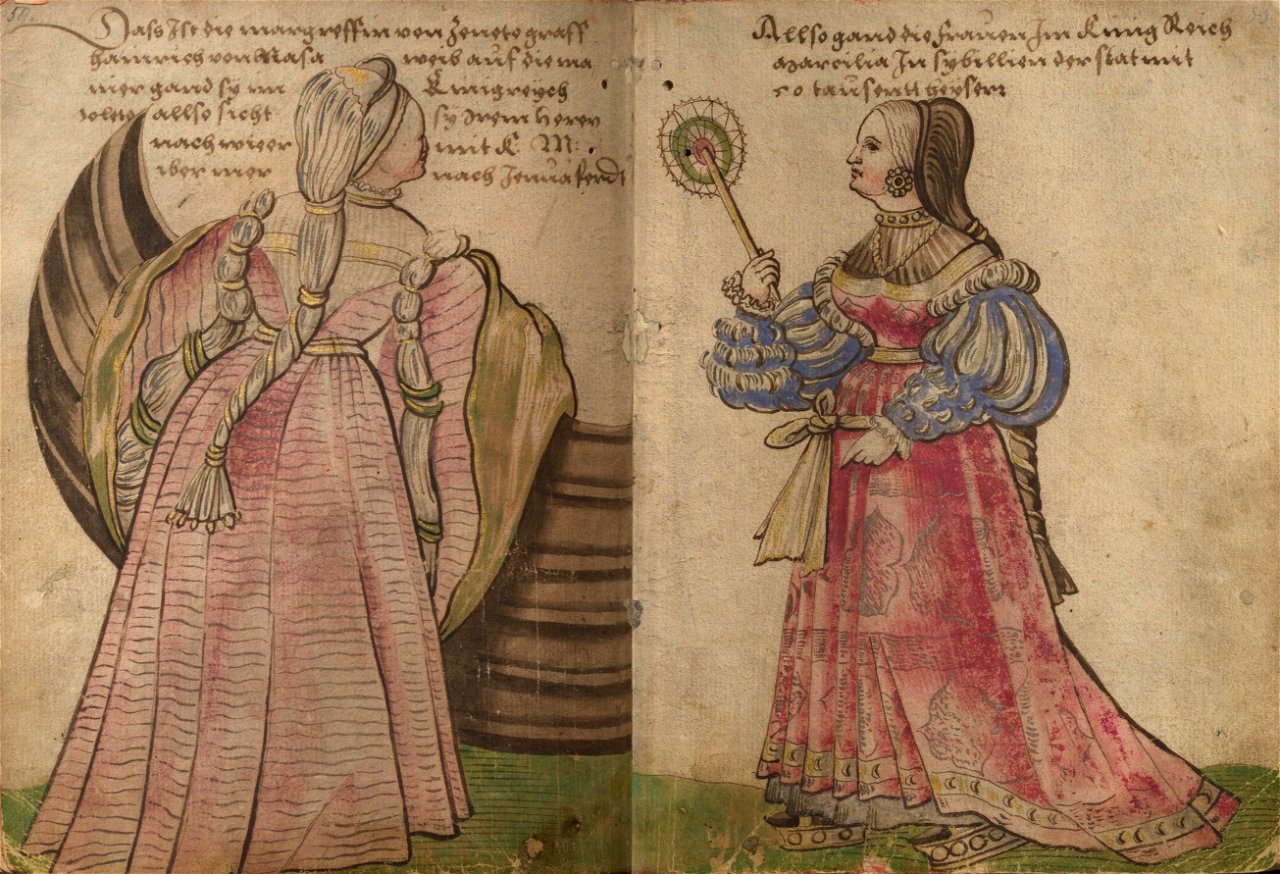 50.
Dass Ist die margreffin von Zenete graff
hainrich von Nasa weib auf die ma
nier gand sy im Kinigreych
allso sicht sy Irem Heren
nach wie er mit K M:
iber mer nach Jenua ferdt
Allso gand die frauen Im Kinig Reich
Marcilia In sybillien der stat mit
50 tausentt heyser